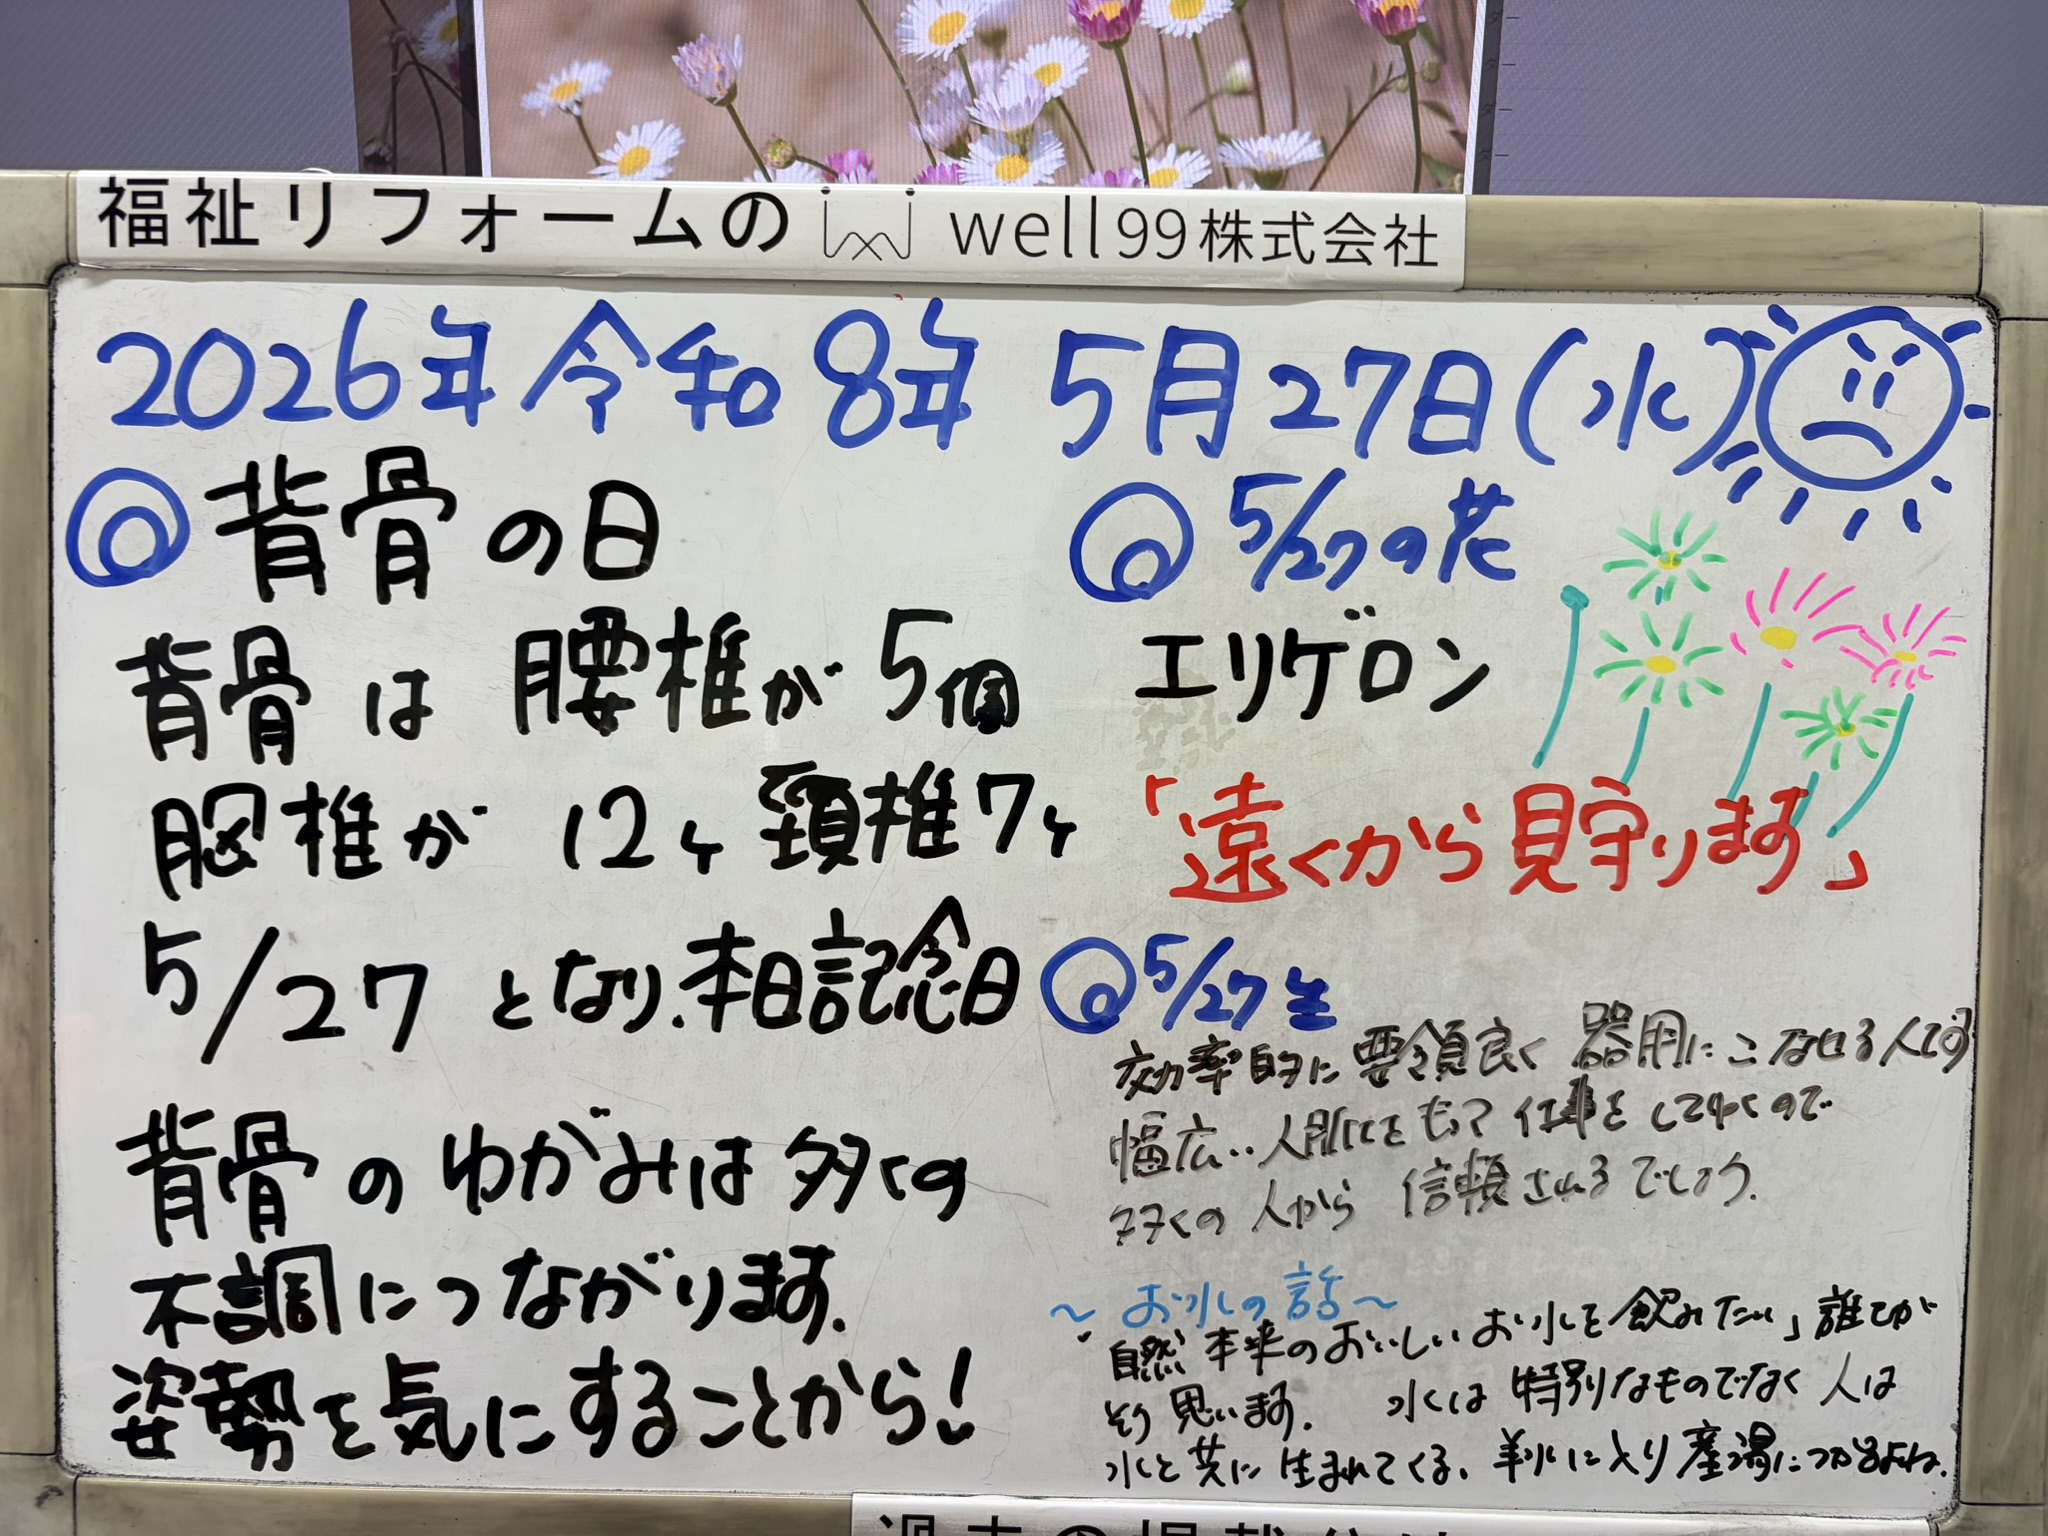 福祉リフォームの well99株式会社
2026年令和8年 5月27日(水)
背骨の日
背骨は腰椎が5個
胸椎が12ヶ頚椎7ヶ
5/27となり、本日記念日
背骨のゆがみは多くの
不調につながります.
姿勢を気にすることから!
5/27の花
エリゲロン
「遠くから見守ります」
5/27生
効率的に要領良く器用にこなせる人です
幅広い人脈をもって仕事をしてゆくので
多くの人から信頼されるでしょう.
〜お水の話〜
「自然本来のおいしいお水を飲みたい」誰もが
そう思います. 水は特別なものでなく人は
水と共に生まれてくる、羊水に入り産湯につかるよね.